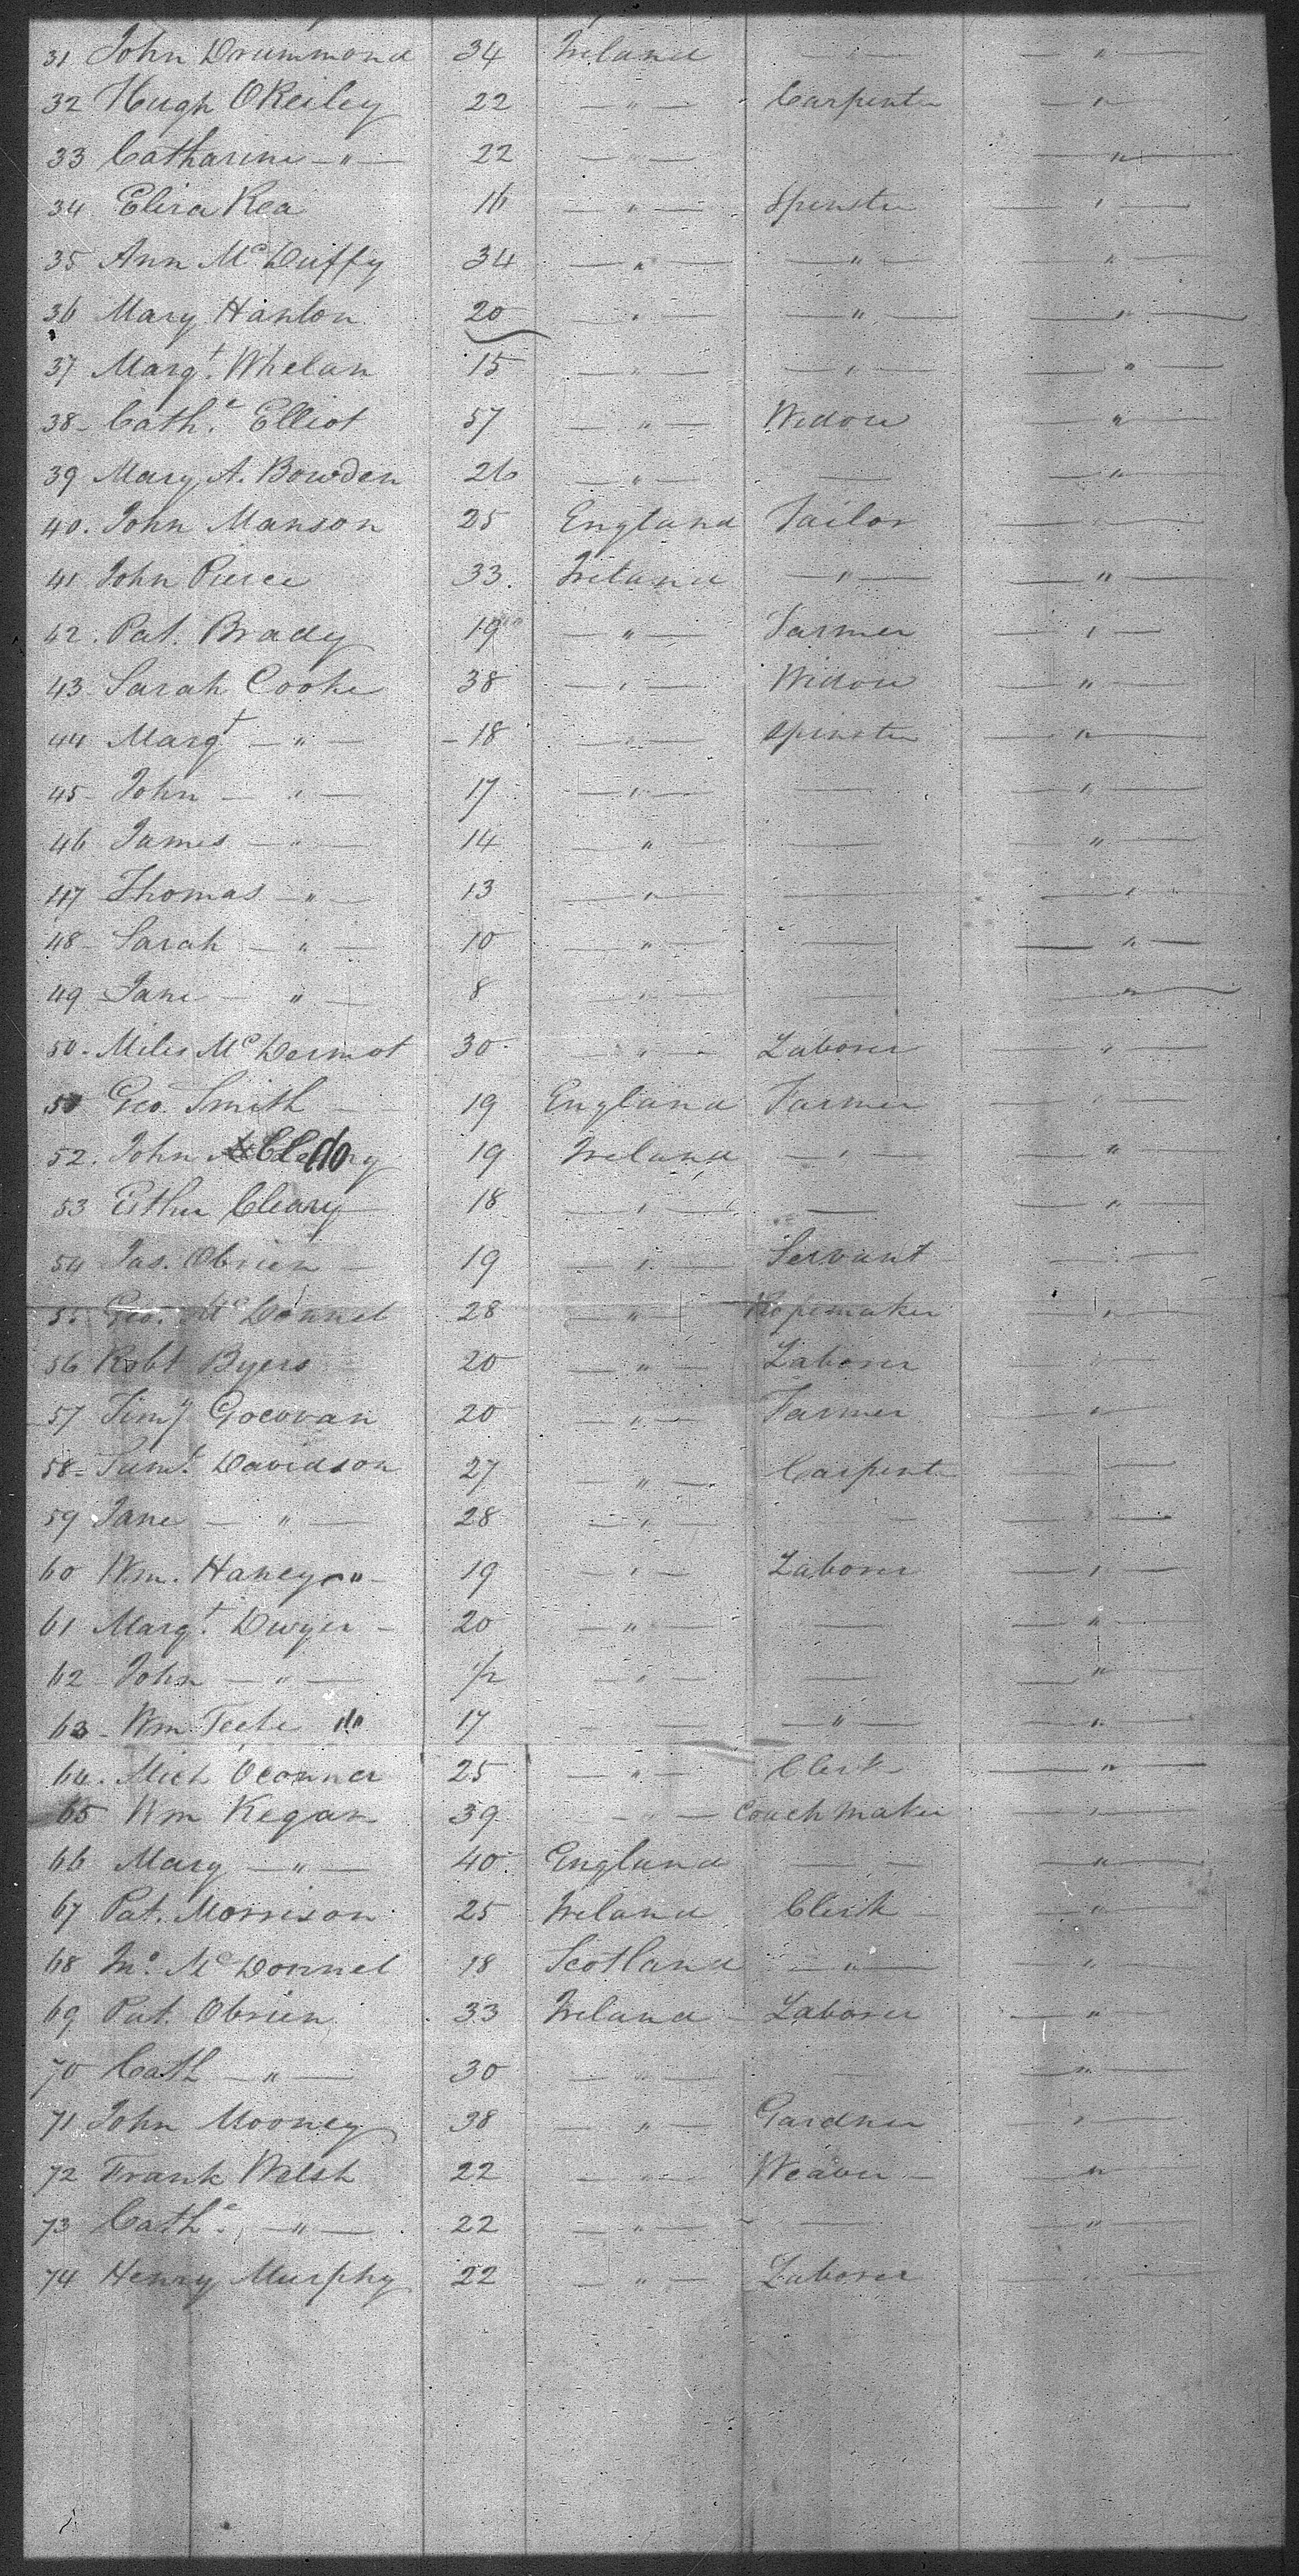 31 John Drummond 34 Ireland — " —
32 Hugh OReiley 22 — " — Carpenter — " —
33 Catharine — " — 22 — " — — " —
34 Eliza Rea 16 — " — Spinster — " —
35 Ann McDuffy 34 — " — — " — — " —
36 Mary Hanlon 20 — " — — " — — " —
37 Margt. Whelan 15 — " — — " — — " —
38 Cathe. Elliot 57 — " — Widow — " —
39 Mary A. Bowden 26 — " — — — " —
40. John Manson 25 England Tailor — " —
41 John Pierce 33. Ireland — " — — " —
42. Pat. Brady 19 — " — Farmer — " —
43 Sarah Cooke 38 — " — Widow — " —
44 Margt — " — 18 — " — Spinster — " —
45 John — " — 17 — " — — — " —
46 James — " — 14 — " — — — " —
47 Thomas — " — 13 — " — — — " —
48 Sarah — " — 10 — " — — — " —
49 Jane — " — 8 — " — — — " —
50. Miles McDermot 30 — " — Laborer — " —
51 Geo. Smith — 19 England Farmer — " —
52. John do 19 Ireland — " — — " —
53 Esther Cleary 18 — " — — — " —
54 Jas. Obrien 19 — " — Servant — " —
55 Geo. McDonnel 28 — " — Ropemaker — " —
56 Robt Byers 20 — " — Laborer — " —
57 Timy 20 — " — Farmer — " —
58 Saml. Davidson 27 — " — Carpent — " —
59 Jane — " — 28 — " — — — " —
60 Wm. Haney 19 — " — Laborer — " —
61 Margt. Dwyer — 20 — " — — — " —
62 John — " — — " — — — " —
63 Wm 17 — — — " — — " —
64. Mich Oconner 25 — " — Clerk — " —
65 Wm Kegan 39 — " — Coachmaker — " —
66 Mary — " — 40. England — — " —
67 Pat. Morrison 25 Ireland Clerk — " —
68 Jno. McDonnel 18 Scotland — " — — " —
69 Pat. Obrien 33 Ireland Laborer — " —
70 Cath — " — 30 — " — — — " —
71 John Mooney 38 — " — Gardner — " —
72 Frank Welsh 22 — " — Weaver — " —
73 Cathe. — " — 22 — " — — — " —
74 Henry Murphy 22 — " — Laborer — " —